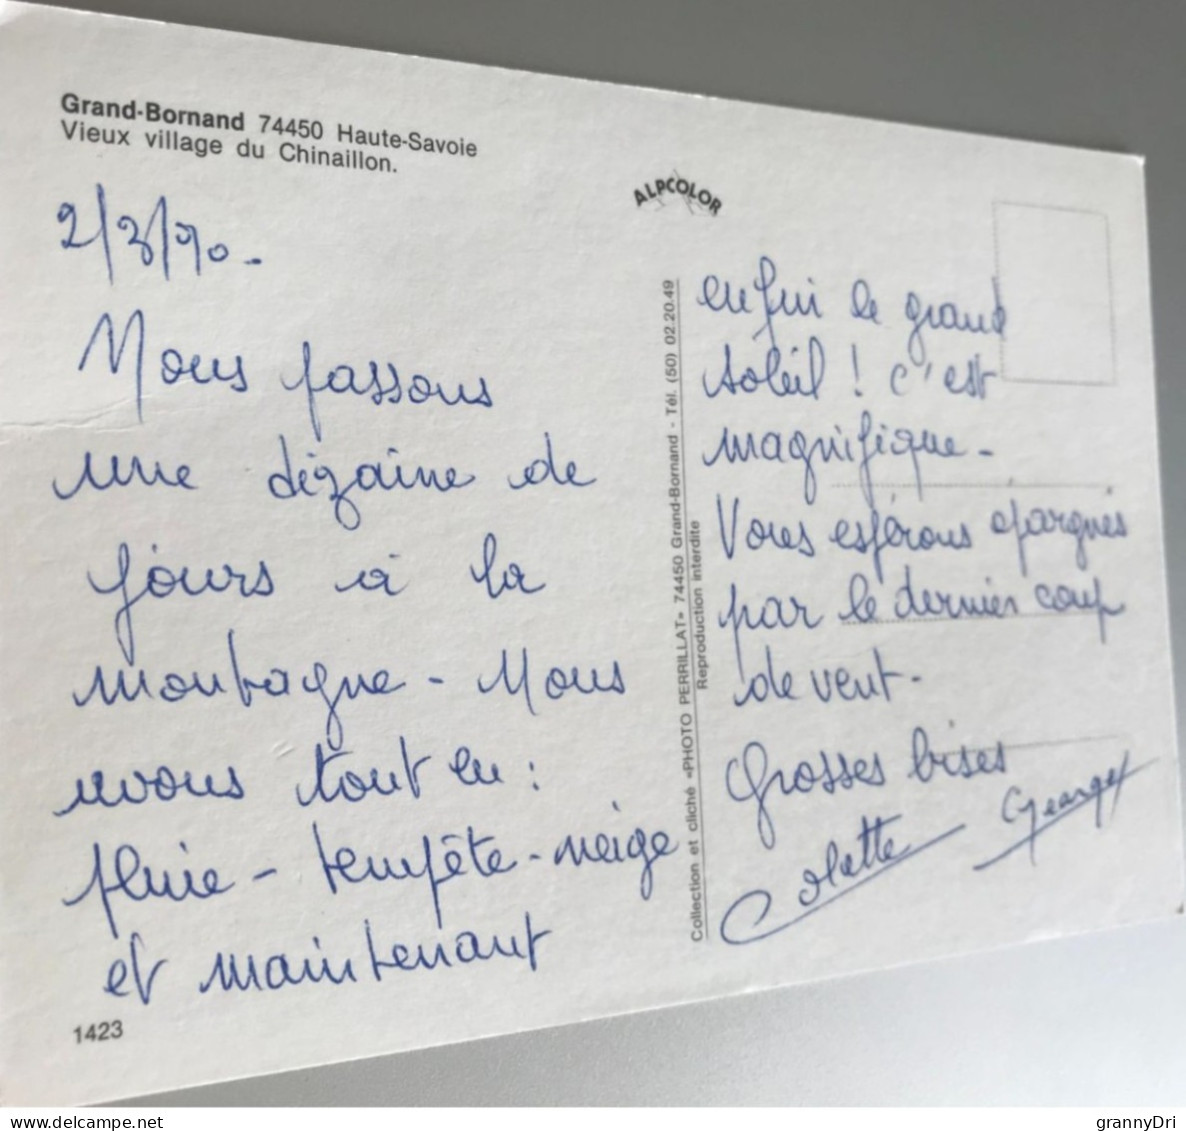 Grand-Bornand 74450 Haute-Savoie
Vieux village du Chinaillon.
2/3/90.
Nous passons
une dizaine de
jours à la
montagne - Nous
avons tout eu :
pluie - tempête - neige
et maintenant
1423
ALPCOLOR
Collection et cliché «PHOTO PERRILLAT» 74450 Grand-Bornand - Tél. (50) 02.20.49
Reproduction interdite
enfin le grand
soleil ! c'est
magnifique -
Vous espérons épargnés
par le dernier coup
de vent -
Grosses bises
Colette Georges
delcampe.net
grannyDri